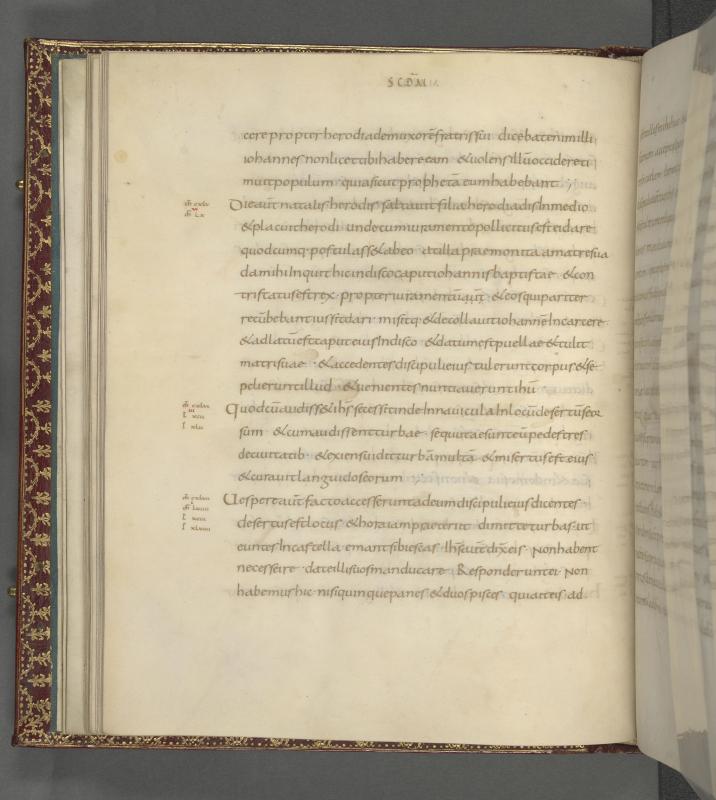 SCDM
cere propter herodiadem uxorē fratris sui dicebat enim illi
iohannes non licet tibi habere eam & uolens illū occidere ti
muit populum quia sicut prophetā eum habebant
Die aūt natalis herodis saltauit filia herodiadis In medio
& placuit herodi unde cum iuramento pollicitus est ei dare
quodcumq postulass& ab eo at illa praemonita a matre sua
da mihi Inquit hic In disco caput iohannis baptistae & con
tristatus est rex propter iuramentū aūt & eos qui pariter
recūbebant iussit dari misitq & decollauit iohannē In carcere
& adlatū est caput eius In disco & datum est puellae & tulit
matri suae & accedentes discipuli eius tulerunt corpus & se
pelierunt illud & uenientes nuntiauerunt ihū
Quod cū audiss& ihs secessit inde In nauicula In locū desertū seor
sum & cum audissent turbae secutae sunt eū pedestres
de ciuitatib & exiens uidit turbā multā & misertus est eius
& curauit languidos eorum
Uespere aūt facto accesserunt ad eum discipuli eius dicentes
desertus est locus & hora iam praeteriit dimitte turbas ut
euntes In castella emant sibi escas Ihs aūt dix eis Non habent
necesse ire date illis uos manducare Responderunt ei Non
habemus hic nisi quinque panes & duos pisces qui ait eis ad